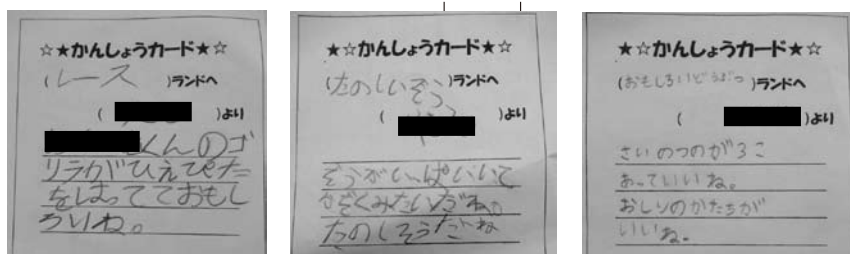 ☆★かんしょうカード★☆
(レース)ランドへ
( )より
くんのゴ
リラがひえてぴた
をはっておもし
ろいね。
★☆かんしょうカード★☆
(たのしいぞう)ランドへ
( )より
ぞうがいっぱいいて
かぞくみたいだね。
たのしそうだね
★☆かんしょうカード★☆
(おもしろいどうぶつ)ランドへ
( )より
さいのつのが3こ
あっていいね。
おしりのかたちが
いいね。